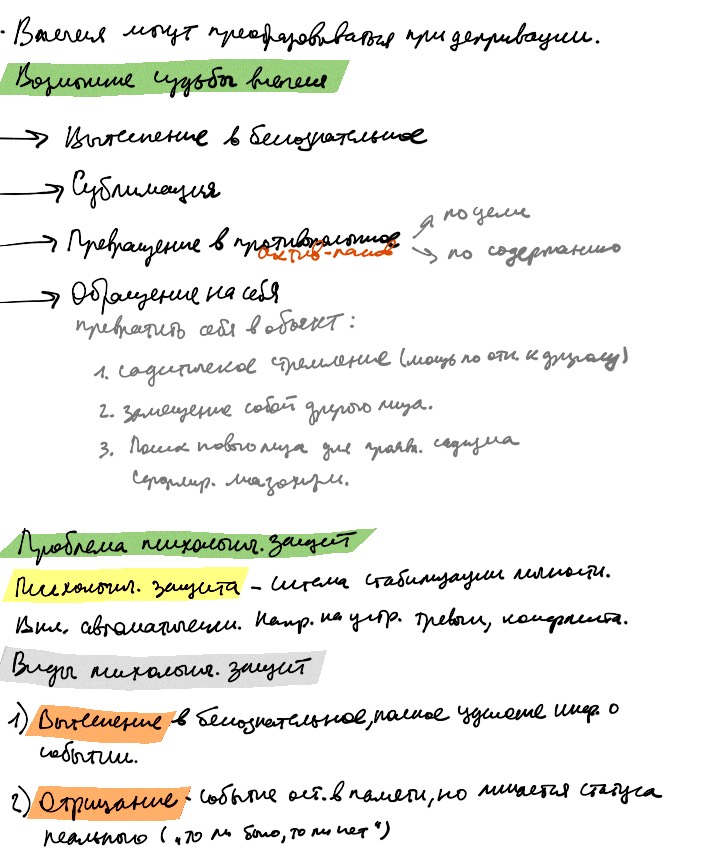 · Влечения могут преобразовываться при депривации.
Возможные судьбы влечения
→ Вытеснение в бессознательное
→ Сублимация
→ Превращение в противоположное ↗ по цели
актив-пассив → по содержанию
→ Обращение на себя
превратить себя в объект:
1. садистическое стремление (мощь по отн. к другому)
2. замещение собой другого лица.
3. Поиск нового лица для прояв. садизма
сформир. мазохизм.
Проблема психологич. защит
Психологич. защита - система стабилизации личности.
Вкл. автоматически. Напр. на устр. тревоги, конфликта.
Виды психологич. защит
1) Вытеснение в бессознательное, полное удаление инф. о
событии.
2) Отрицание - событие ост. в памяти, но лишается статуса
реального („то ли было, то ли нет")